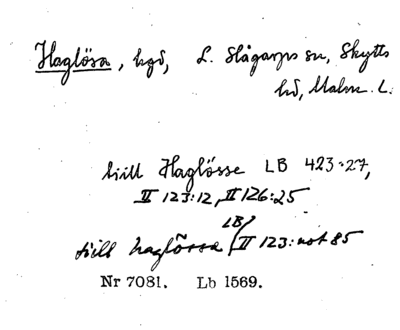 Haglösa, hgd, L. Slågarps sn, Skytts
hd, Malm. L.
till Haglösse LB 423:27,
II 123:12, II 126:25
till haglõssa LB/ II 123: not 85
Nr 7081. Lb 1569.